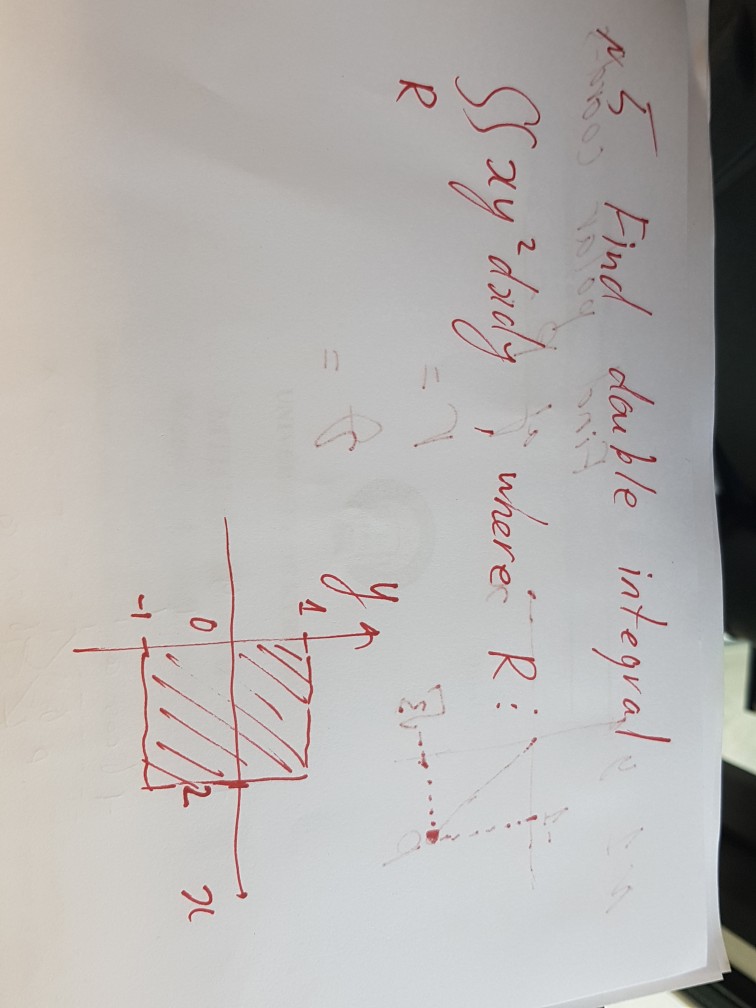 №5 Find double integral
∬ xy² dxdy, where R:
R
y
1
0
2
x
-1